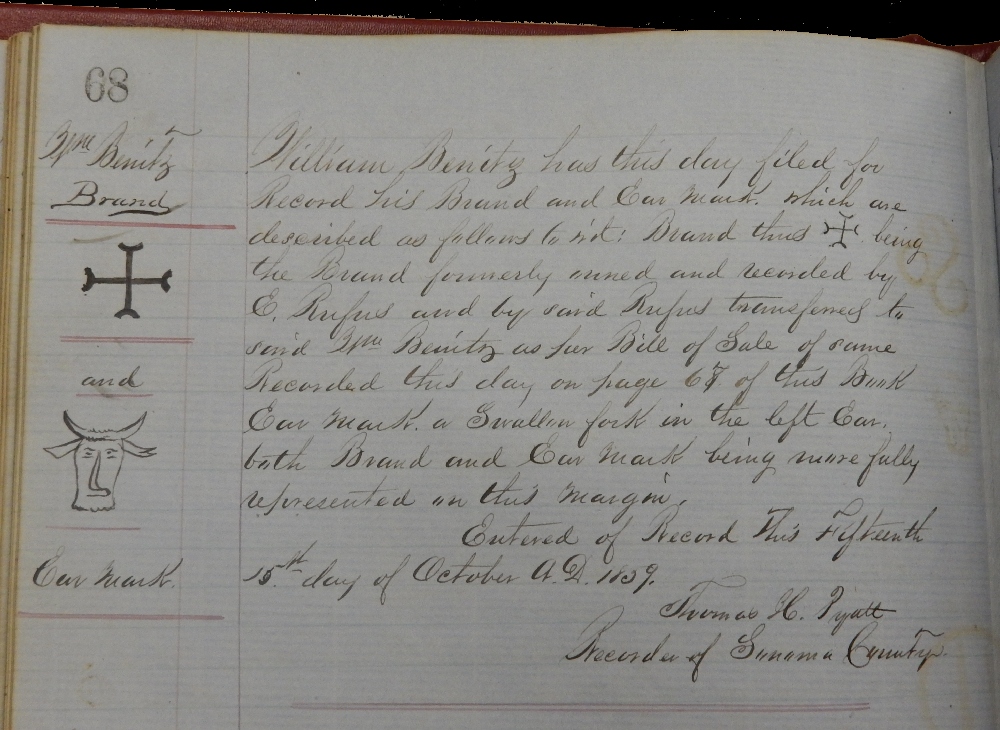 68
Wm Benitz
Brand
and
Ear Mark.
William Benitz has this day filed for
Record his Brand and Ear Mark. which are
described as follows to wit: Brand thus being
the Brand formerly owned and recorded by
E. Rufus and by said Rufus transferred to
said Wm Benitz as per Bill of Sale of same
Recorded this day on page 67 of this Book
Ear Mark. a Swallow fork in the left Ear.
both Brand and Ear Mark being more fully
represented on this Margin.
Entered of Record This Fifteenth
15th day of October A.D. 1859.
Thomas H. Pyatt
Recorder of Sonoma County.